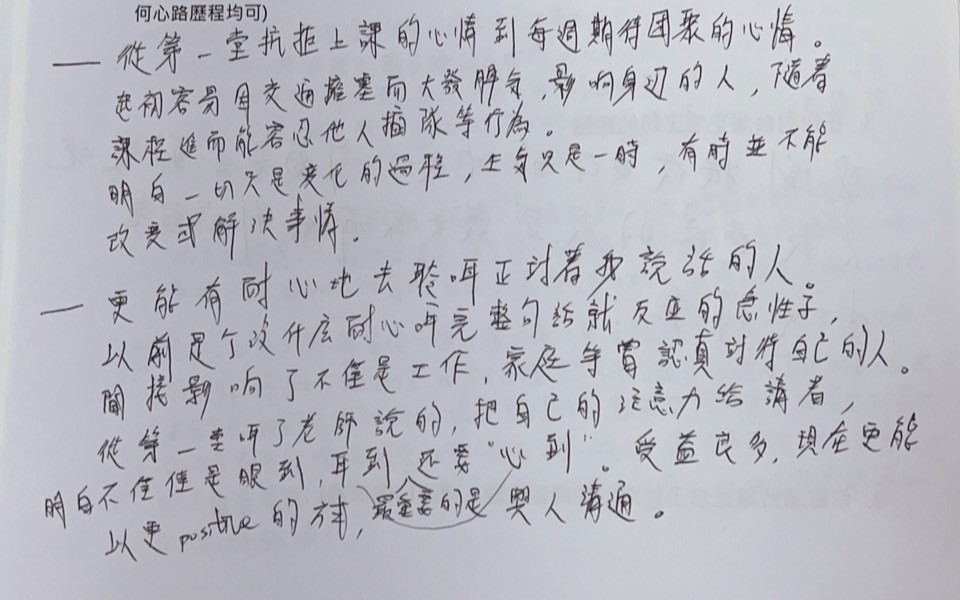 何心路歷程均可)
— 從第一堂抗拒上課的心情到每週期待團聚的心情。
起初容易因交通擠塞而大發脾气,影响身边的人,隨着
課程進而能容忍他人插隊等行為。
明白一切只是変化的過程,生気只是一時,有時並不能
改変或解决事情。
— 更能有耐心地去聆听正対着我說話的人。
以前是个沒什庅耐心听完整句話就反应的急性子,
間接影响了不僅是工作,家庭等曾認真対待自己的人。
從第一堂听了老師說的,把自己的注意力给講者,
明白不僅僅是眼到,耳到 还要"心到"。受益良多,現在更能
以更positive的方式,最重要的是與人溝通。